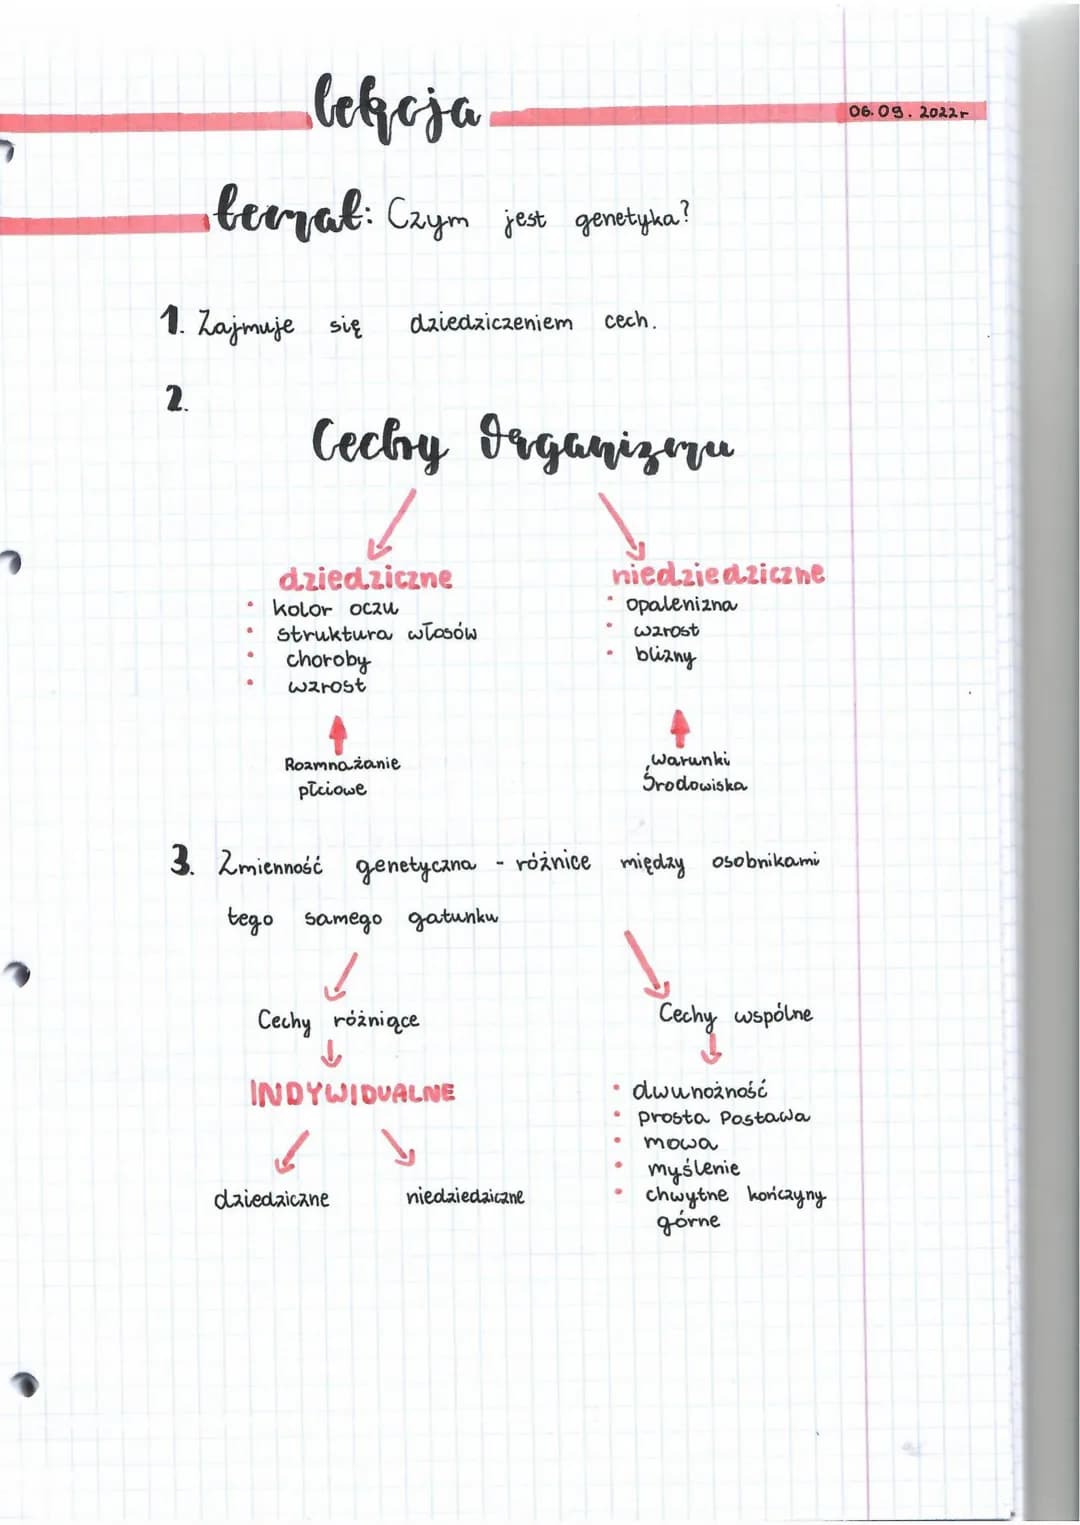 lekcja
06.09.2022r
temat: Czym jest genetyka?
1. Zajmuje się dziedziczeniem cech.
2.
Cechy Organizmu
dziedziczne
• kolor oczu
• struktura włosów
• choroby
• wzrost
Rozmnażanie
płciowe
niedziedziczne
• opalenizna
• wzrost
• blizny
warunki
środowiska
3. Zmienność genetyczna - różnice między osobnikami
tego samego gatunku
Cechy różniące
INDYWIDUALNE
dziedziczne
niedziedziczne
Cechy wspólne
• dwunożność
• prosta Postawa
• mowa
• myślenie
• chwytne kończyny
górne